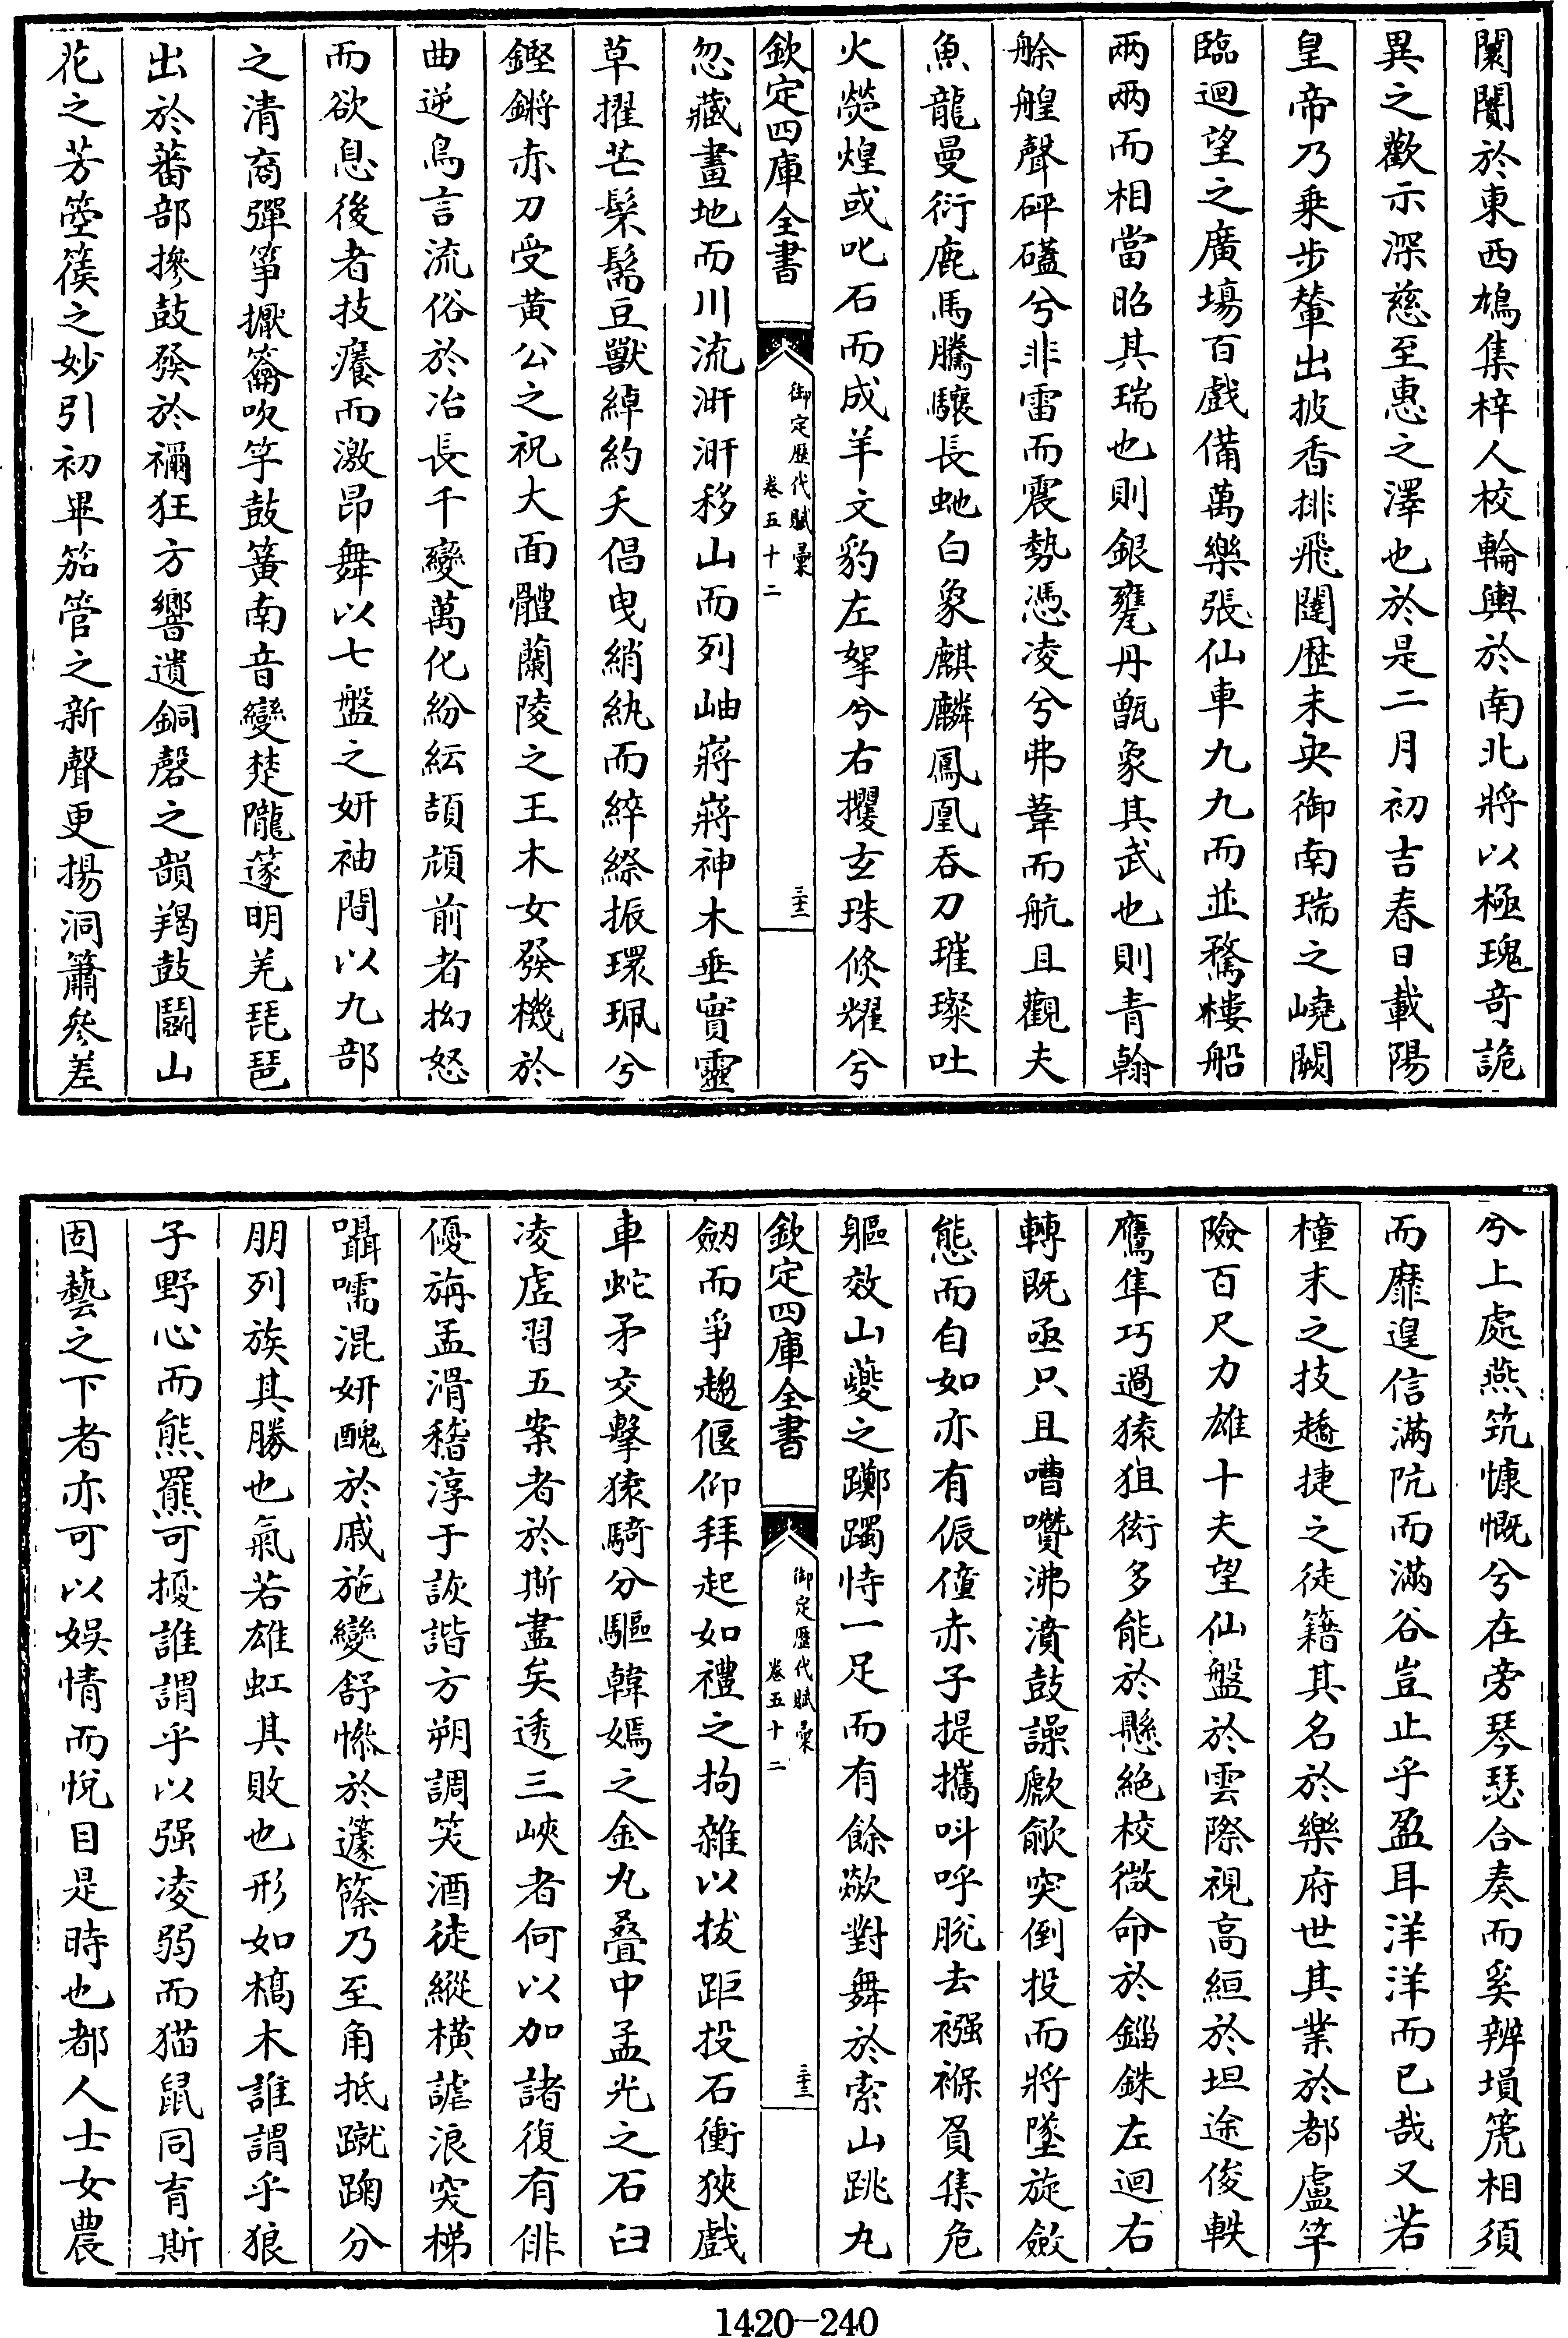 闤闠於東西鳩集梓人校輪輿於南北將以極瑰奇詭
異之歡示深慈至惠之澤也於是二月初吉春日載陽
皇帝乃乗步輦出披香排飛闥歴未央御南瑞之嶢闕
臨迴望之廣塲百戲備萬樂張仙車九九而並騖樓船
兩兩而相當昭其瑞也則銀甕丹甑象其武也則青翰
艅艎聲砰礚兮非雷而震勢憑凌兮弗葦而航且觀夫
魚龍曼衍鹿馬騰驤長虵白象麒麟鳳凰吞刀璀璨吐
火熒煌或叱石而成羊文豹左拏兮右攫玄珠倐耀兮
欽定四庫全書
御定歴代賦彚
卷五十二
三十二
忽藏畫地而川流汧汧移山而列岫嶈嶈神木垂實靈
草擢芒髤髵豆獸綽約夭倡曳綃紈而綷縩振環珮兮
鏗鏘赤刀受黄公之祝大面體蘭陵之王木女發機於
曲逆鳥言流俗於冶長千變萬化紛紜頡頏前者拗怒
而欲息後者技癢而激昂舞以七盤之妍袖間以九部
之清商彈筝擫籥吹竽鼓簧南音變楚隴篴明羌琵琶
出於蕃部摻鼓發於禰狂方響遺銅磬之韻羯鼓鬬山
花之芳箜篌之妙引初畢笳管之新聲更揚洞簫參差
兮上處燕筑慷慨兮在旁琴瑟合奏而奚辨塤箎相須
而靡遑信滿阬而滿谷豈止乎盈耳洋洋而已哉又若
橦末之技趫捷之徒籍其名於樂府世其業於都盧竿
險百尺力雄十夫望仙盤於雲際視高絙於坦途俊軼
鷹隼巧過猿狙衒多能於懸絶校微命於錙銖左迴右
轉既亟只且嘈囋沸濆鼓譟歔歈突倒投而將墜旋斂
態而自如亦有侲僮赤子提攜呌呼脫去襁褓負集危
軀效山夔之躑躅恃一足而有餘歘對舞於索山跳丸
欽定四庫全書
御定歴代賦彚
卷五十二
三十三
劒而爭趨偃仰拜起如禮之拘雜以拔距投石衝狹戲
車蛇矛交擊猿騎分驅韓嫣之金丸疊中孟光之石臼
凌虗習五案者於斯盡矣透三峽者何以加諸復有俳
優旃孟滑稽淳于詼諧方朔調笑酒徒縱横謔浪突梯
囁嚅混妍醜於戚施變舒慘於籧篨乃至角抵蹴踘分
朋列族其勝也氣若雄虹其敗也形如槁木誰謂乎狼
子野心而熊羆可擾誰謂乎以强凌弱而猫鼠同育斯
固藝之下者亦可以娱情而悅目是時也都人士女農
1420-240